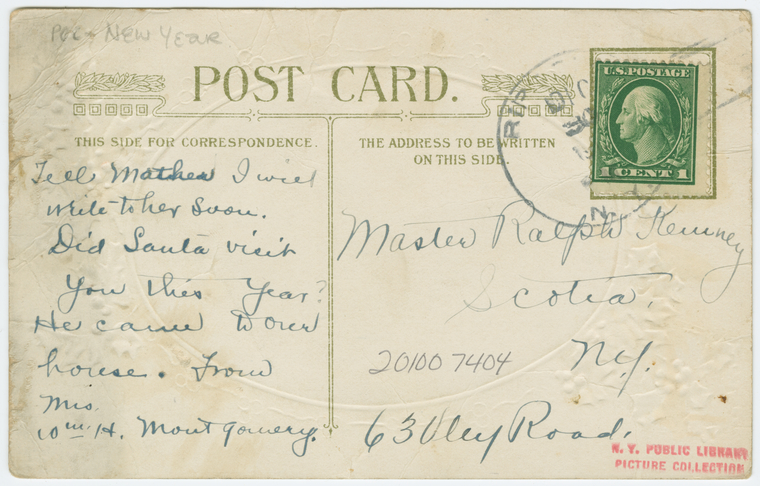 PCC - NEW YEAR
POST CARD.
THIS SIDE FOR CORRESPONDENCE.
Tell Mother I will
write to her soon.
Did Santa visit
You this Year?
He came to our
house. From
Mrs.
Wm. H. Montgomery.
THE ADDRESS TO BE WRITTEN
ON THIS SIDE.
U.S. POSTAGE
1 CENT 1
Master Ralph Kenney
Scotia,
N.Y.
20100 7404
63 Vley Road.
N. Y. PUBLIC LIBRARY
PICTURE COLLECTION